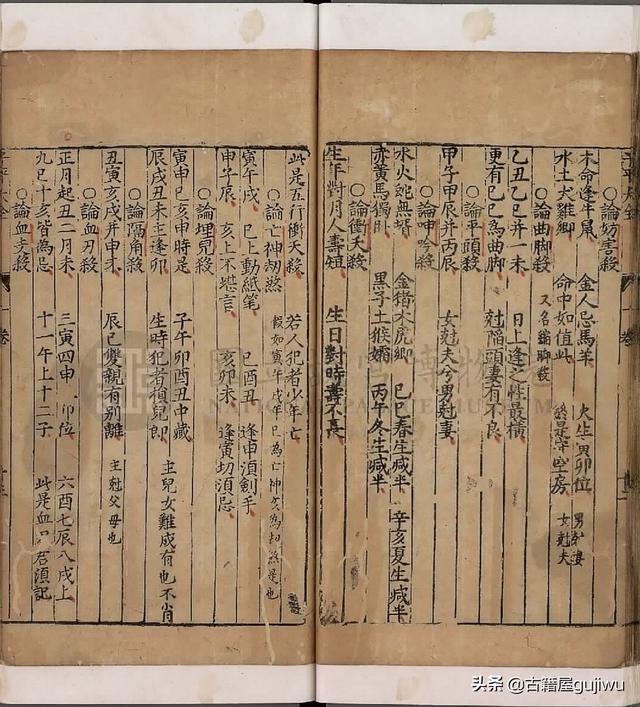 ○論妨害殺
木命逢牛鼠 金人忌馬羊 火生男卯位 男妨妻
水土犬雞鄉 命中如值此 終是守空房 女尅夫
○論曲脚殺 又名鎖脚殺
乙丑乙巳并一未 日上逢之性最橫
更有巳巳為曲脚 尅陷頭妻有不良
○論平頭殺
甲子甲辰并丙辰 女尅夫兮男尅妻
○論呻吟殺
水火蛇無婿 金猪木虎鄉 巳巳春生減半 辛亥夏生減半
赤黃馬獨眠 黑子土猴孀 丙午冬生減半
○論衝天殺
生年對月人壽短 生日對時壽不長
此是五行衝天殺 若人犯者少年亡
○論亡神刼煞 假如寅午戌年巳為亡神亥為刼煞是也
寅午戌 巳上動紙筆 巳酉丑 逢申須劍手
申子辰 亥上不堪言 亥卯未 逢寅切須忌
○論埋兒殺
寅申巳亥申時是 子午卯酉丑中藏
辰戌丑未主逢卯 生時犯者損兒郎 主兒女難成有也不肖
○論隔角殺
丑寅亥戌并申未 辰巳雙親有別離 主尅父母也
○論血刃殺
正月起丑二月未 三寅四申 卯位 六酉七辰八戌上
九巳十亥皆為忌 十一午上十二子 此是血 君須記
○論血支殺
國立故宮博物
NATIONAL PALACE MUSEUM
头条 @古籍屋gujiwu